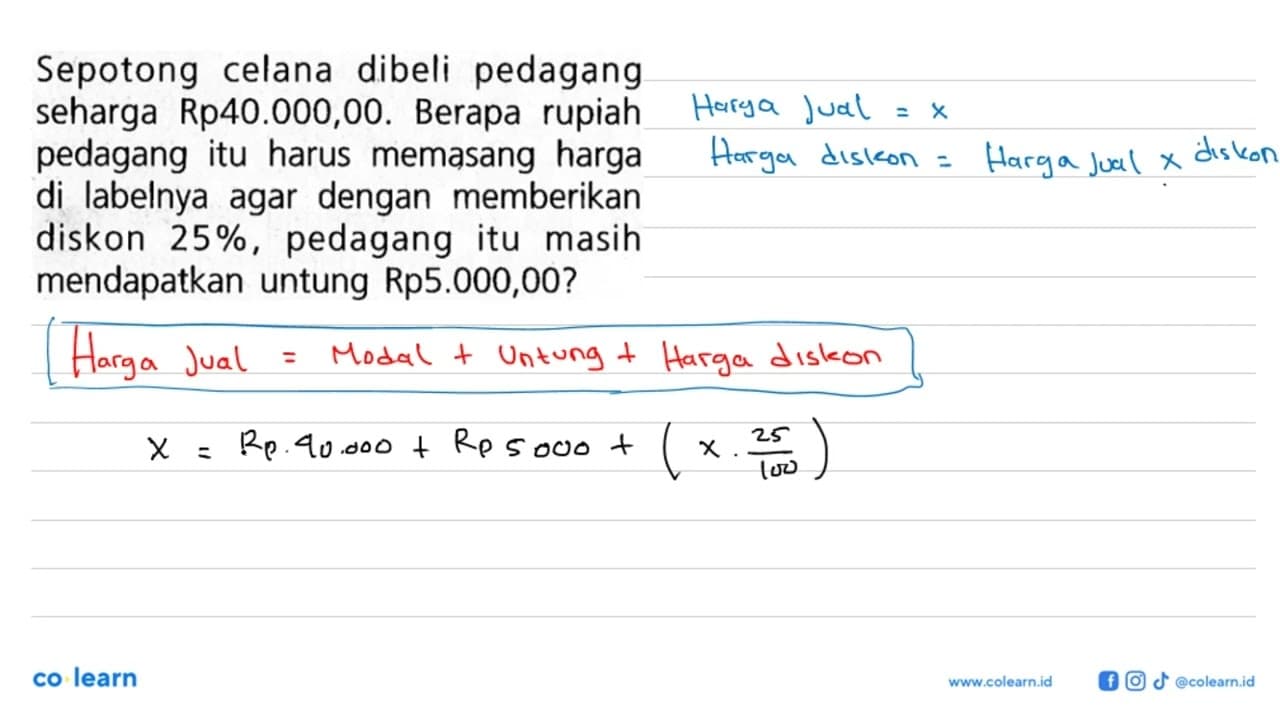 Sepotong celana dibeli pedagang
seharga Rp40.000,00. Berapa rupiah
pedagang itu harus memasang harga
di labelnya agar dengan memberikan
diskon 25%, pedagang itu masih
mendapatkan untung Rp5.000,00?
Harga Jual = x
Harga diskon = Harga Jual x diskon
Harga Jual = Modal + Untung + Harga diskon
x = Rp.40.000 + Rp 5000 + (x . 25/100)
co learn
www.colearn.id @colearn.id